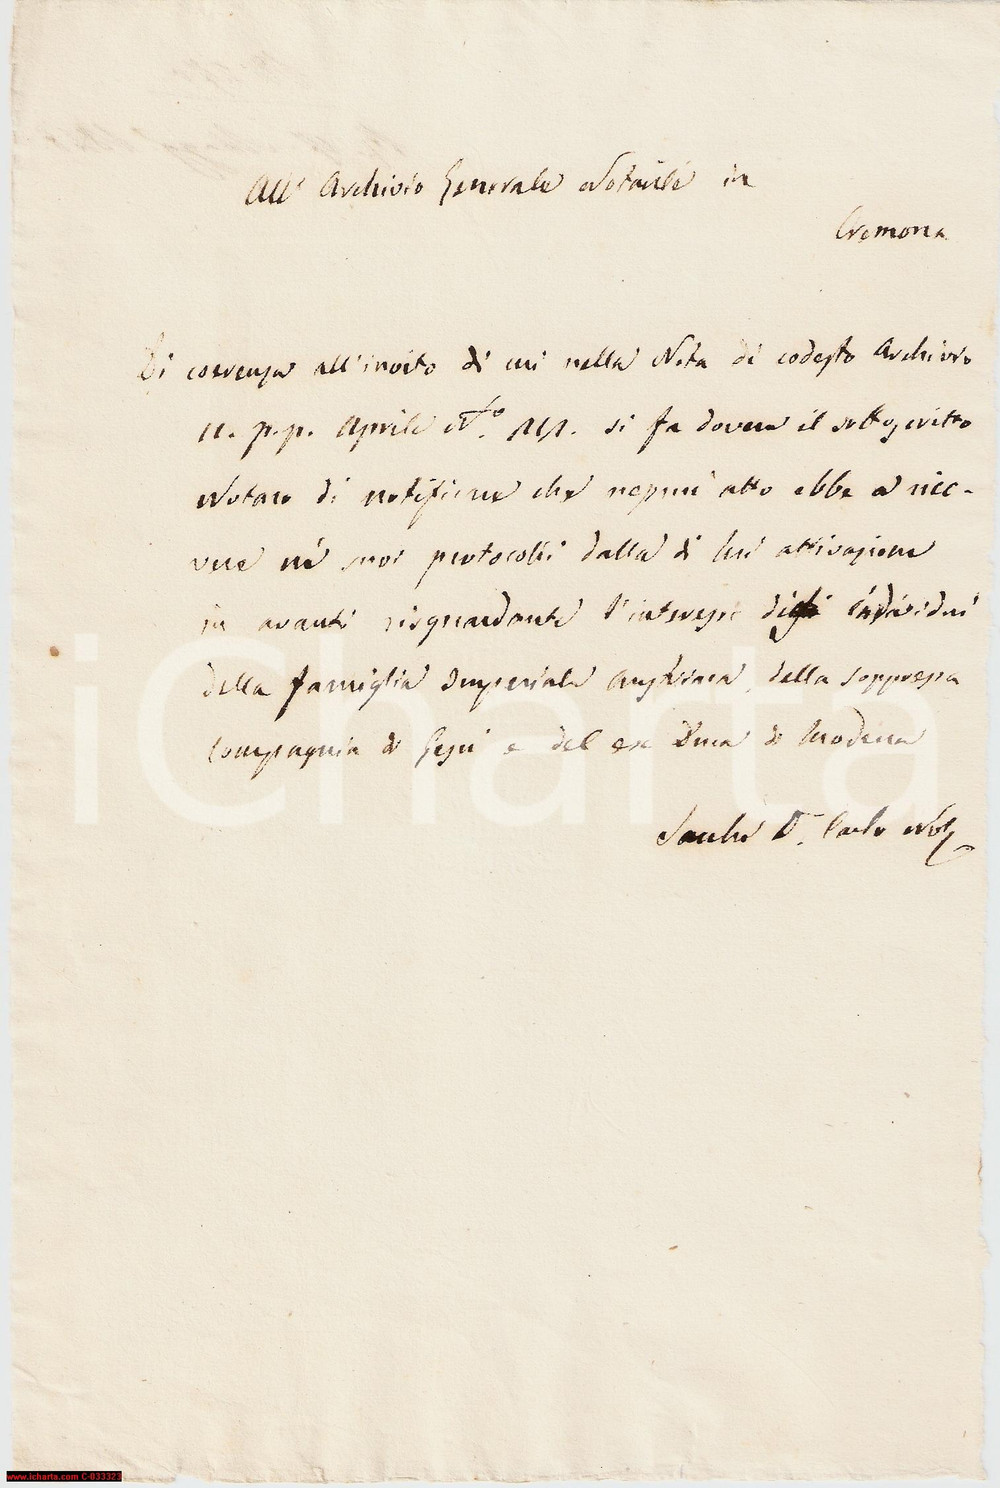 All' Archivio Generale Notarile in
Cremona
Di coerenza all'invito di cui nella Nota di codesto Archivio
11. p.p. Aprile N.º si fa dovere il sottoscritto
Notaro di notificare che nessun atto ebbe a rice-
vere ne' suoi protocolli dalla di lui attivazione
in avanti risguardante l'interesse degli individui
della famiglia Imperiale Austriaca, della soppressa
Compagnia di Gesù e del ex Duca di Modena
D.r Carlo Not.
iCharta
www.icharta.com C-033323